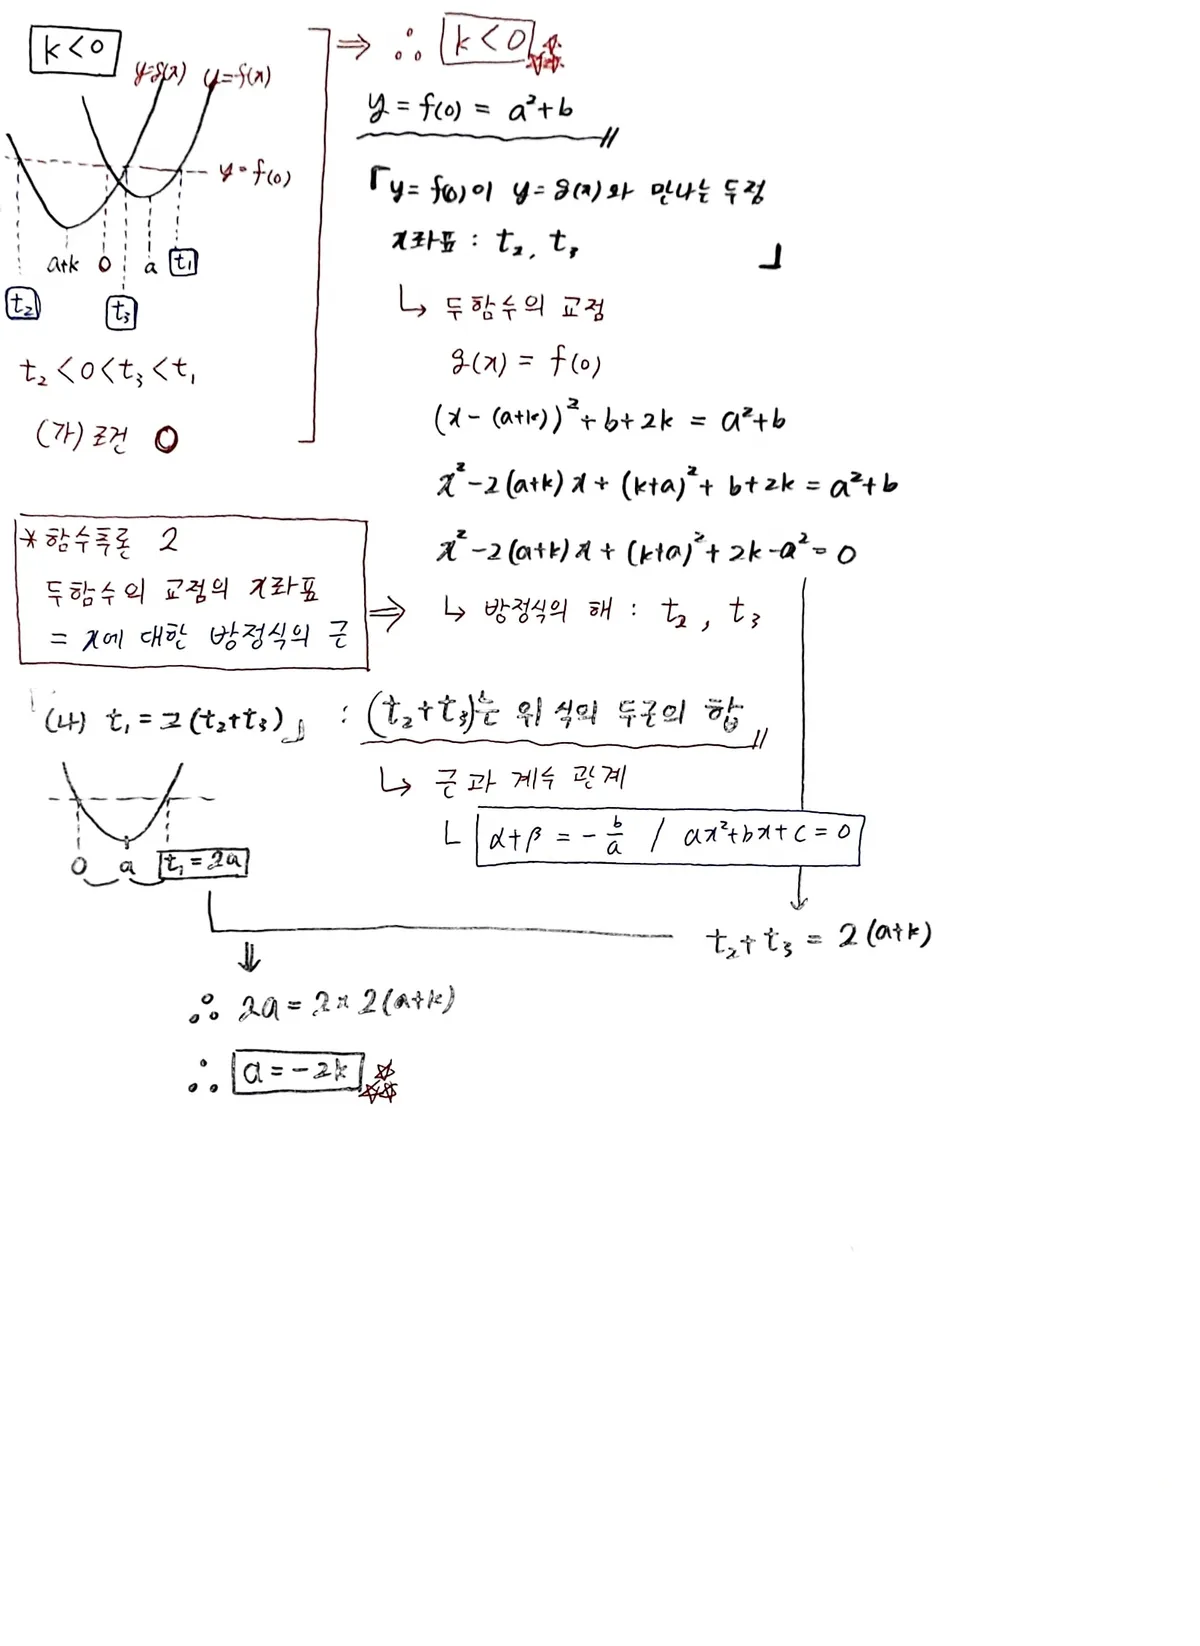 k<0
y=g(x) y=f(x)
y=f(0)
a+k 0 a t₁
t₂ t₃
t₂<0<t₃<t₁
(가)조건 O
⇒ ∴ k<0
y = f(0) = a²+b
「y=f(0)이 y=g(x)와 만나는 두점
x좌표 : t₂, t₃ 」
↳ 두함수의 교점
g(x) = f(0)
(x-(a+k))²+b+2k = a²+b
x²-2(a+k)x+(k+a)²+b+2k=a²+b
x²-2(a+k)x+(k+a)²+2k-a²=0
*함수추론 2
두함수의 교점의 x좌표
= x에 대한 방정식의 근
⇒ ↳ 방정식의 해 : t₂, t₃
「(나) t₁=2(t₂+t₃)」 : (t₂+t₃)는 위 식의 두근의 합
↳ 근과 계수 관계
ㄴ α+β = -b/a / ax²+bx+c=0
0 a t₁=2a
t₂+t₃ = 2(a+k)
∴ 2a=2×2(a+k)
∴ a=-2k